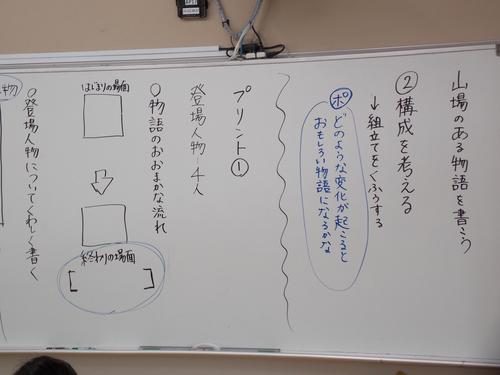 山場のある物語を書こう
②構成を考える
↓組立てをくふうする
ポ どのような変化が起こると
おもしろい物語になるかな
プリント①
登場人物…4人
○物語のおおまかな流れ
はじまりの場面
終わりの場面
[ ]
○登場人物についてくわしく書く
物